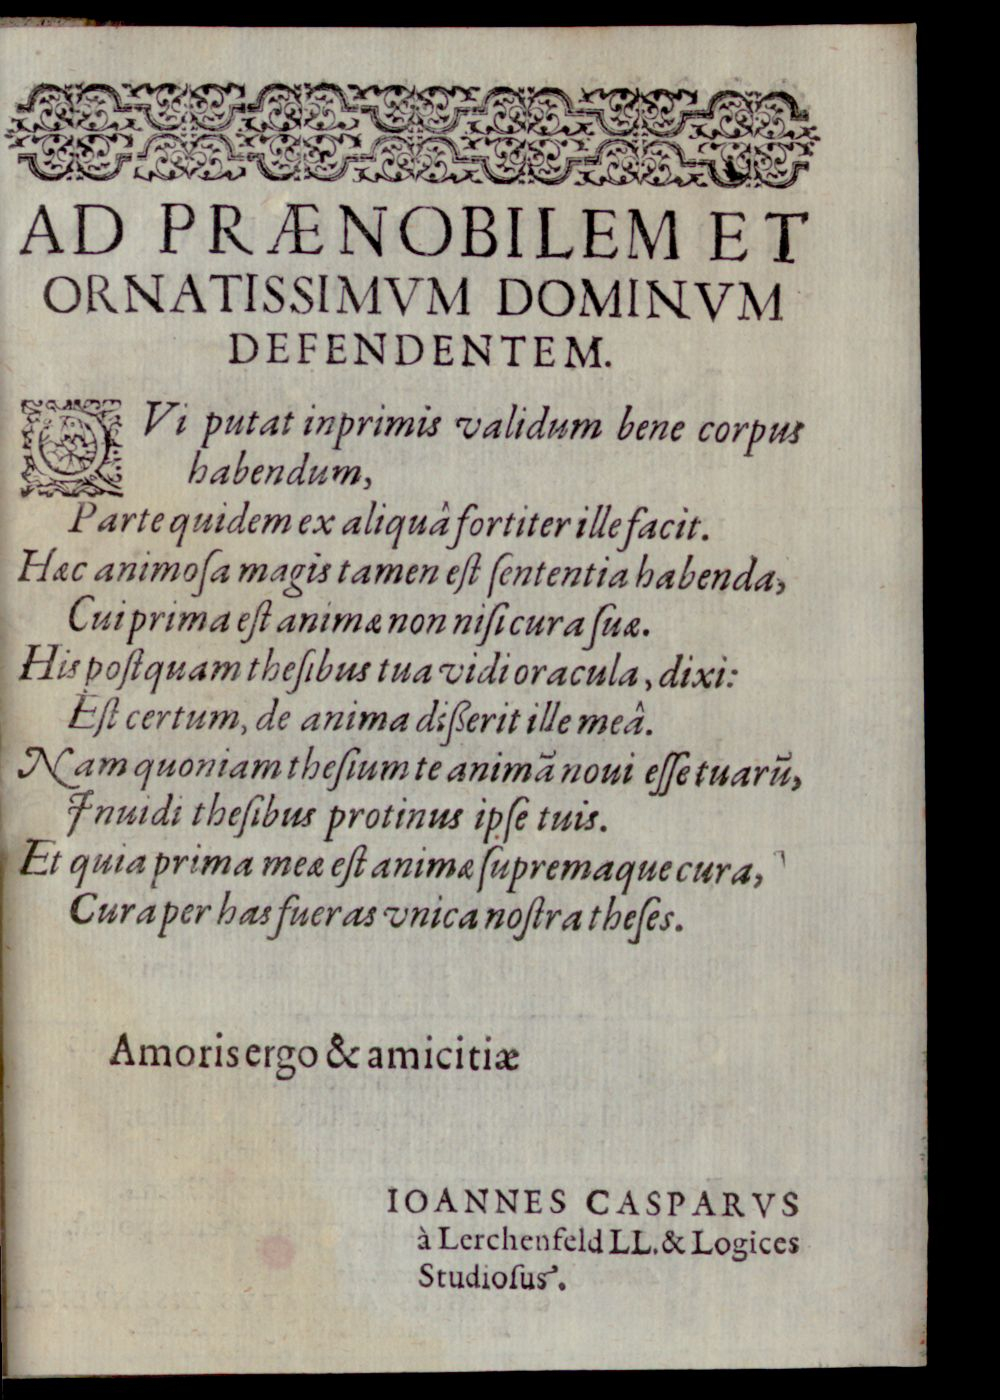 AD PRÆNOBILEM ET
ORNATISSIMVM DOMINVM
DEFENDENTEM.
QVi putat inprimis validum bene corpus
habendum,
Parte quidem ex aliquâ fortiter ille facit.
Hæc animoſa magis tamen eſt ſententia habenda,
Cui prima eſt animæ non niſi cura ſuæ.
His poſtquam theſibus tua vidi oracula, dixi:
Eſt certum, de anima diſſerit ille meâ.
Nam quoniam theſium te animā noui eſſe tuarū,
Inuidi theſibus protinus ipſe tuis.
Et quia prima meæ eſt animæ ſupremaque cura,
Cura per has fueras vnica noſtra theſes.
Amoris ergo & amicitiæ
IOANNES CASPARVS
à Lerchenfeld LL. & Logices
Studioſus.